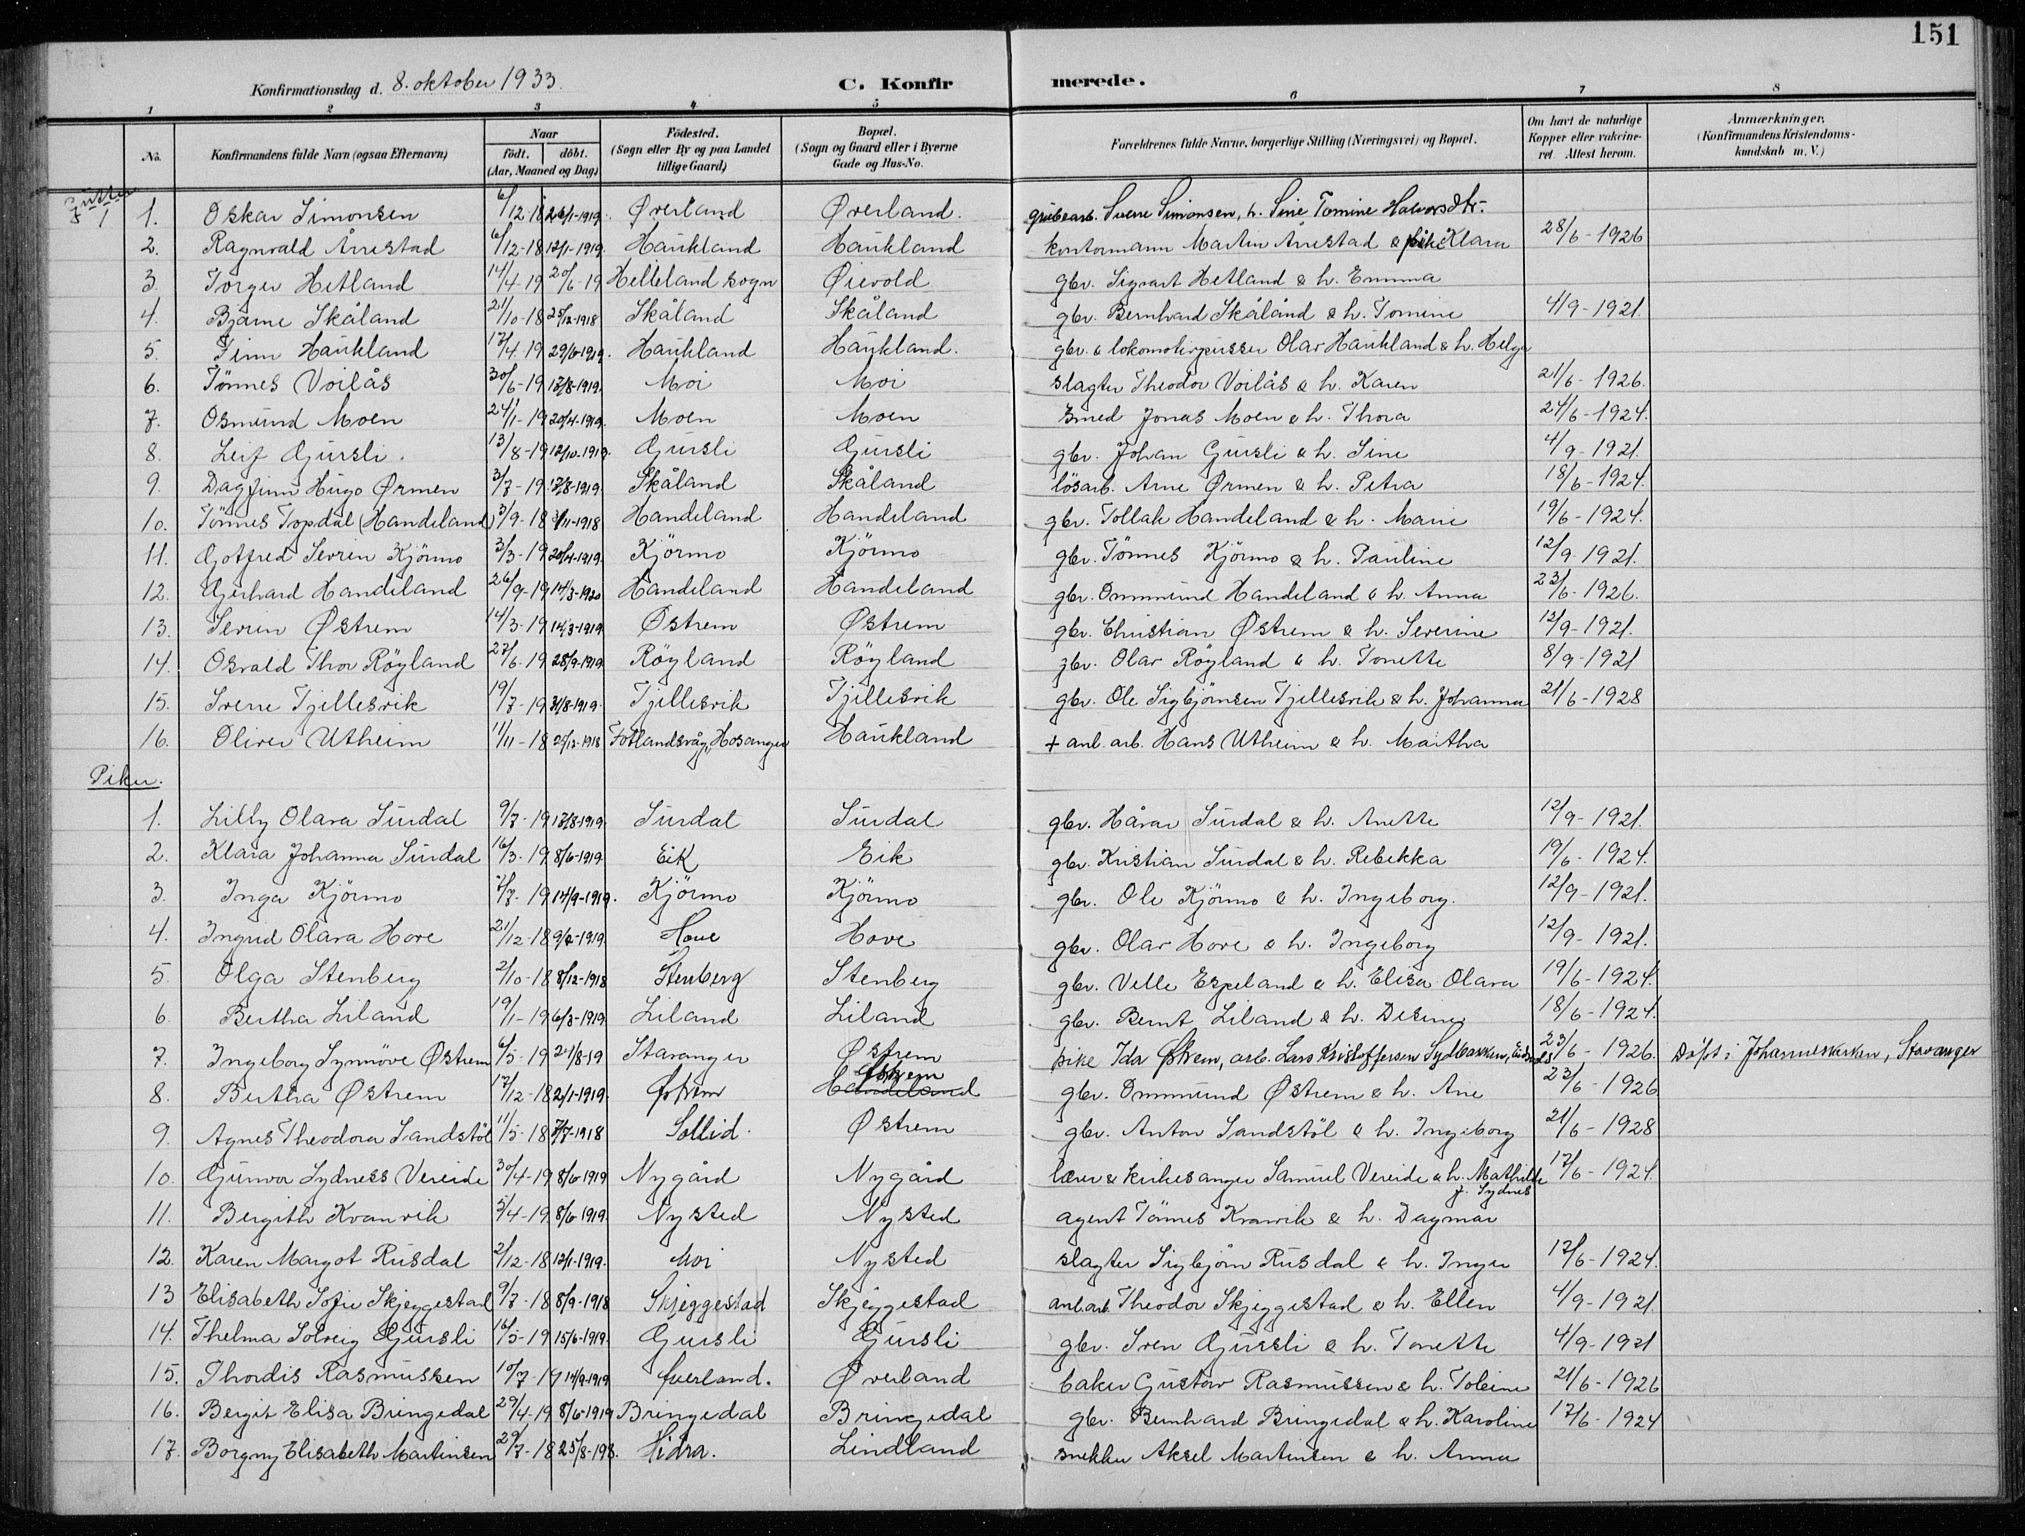 151
Konfirmationsdag d. 8. oktober 1933. C. Konfirmerede.
1 2 3 4 5 6 7 8
No. Konfirmandens fulde Navn (ogsaa Efternavn) Naar födt. döbt. (Aar, Maaned og Dag) Födested. (Sogn eller By og paa Landet tillige Gaard) Bopæl. (Sogn og Gaard eller i Byerne Gade og Hus-No. Forældrenes fulde Navne, borgerlige Stilling (Næringsvei) og Bopæl. Om havt de naturlige Kopper eller vakcineret. Attest herom. Anmærkninger. (Konfirmandens Kristendomskundskab m. V.)
Gutter
1. Oskar Simonsen 6/12-18 26/1-1919. Øverland Øverland. grubearb. Sverre Simonsen, h. Sine Tomine Halvorsdtr.
2. Ragnvald Årrestad 6/12-18 12/1-1919. Haukland Haukland kontormann Martin Årrestad & pike Klara 28/6-1926
3. Torger Hetland 14/4-19 20/6-19 Helleland sogn Øievold gbr. Sigvart Hetland & h. Emma
4. Bjarne Skåland 21/10-18 25/12-1918 Skåland Skåland gbr. Bernhard Skåland & h. Tomine 4/9-1921.
5. Finn Haukland 17/4-19 29/6-1919. Haukland Haukland. gbr. & lokomotivpusser Olav Haukland & h. Helga
6. Tönnes Voilås 30/6-19 17/8-1919. Moi Moi slagter Theodor Voilås & h. Karen 21/6-1926.
7. Osmund Moen 24/1-19 20/4-1919. Moen Moen smed Jonas Moen & h. Thora 24/6-1924.
8. Leif Gursli. 13/8-19 12/10-1919. Gursli Gursli gbr. Johan Gursli & h. Sine 4/9-1921.
9. Dagfinn Hugo Ørmen 3/7-19 17/8-1919. Skåland Skåland lösarb. Arne Ørmen & h. Petra 18/6-1924.
10. Tönnes Topdal (Handeland) 3/9-18 3/11-1918 Handeland Handeland gbr. Tollak Handeland & h. Marie 19/6-1924.
11. Gotfred Severin Kjörmo 3/3-19 20/4-1919. Kjörmo Kjörmo gbr. Tönnes Kjörmo & h. Pauline 12/9-1921.
12. Gerhard Handeland 26/9-19 14/3-1920 Handeland Handeland gbr. Ommund Handeland & h. Anna 23/6-1926.
13. Severin Østrem 14/3-19 14/3-1919. Østrem Østrem gbr. Christian Østrem & h. Severine 12/9-1921.
14. Osvald Thor Röyland 27/6-19 28/9-1919. Röyland Röyland gbr. Olav Röyland & h. Tonette 8/9-1921
15. Svenn Tjellesvik 19/7-19 31/8-1919. Tjellesvik Tjellesvik gbr. Ole Sigbjörnsen Tjellesvik & h. Johanna 21/6-1928
16. Oliver Utheim 11/11-18 Fotlandsvåg, Hosanger Haukland + anl. arb. Hans Utheim & h. Martha
Piker.
1. Lilly Olava Surdal 9/7-19 17/8-1919. Surdal Surdal gbr. Håvar Surdal & h. Anette 12/9-1921.
2. Klara Johanna Surdal 16/3-19 8/6-1919. Eik Eik gbr. Kristian Surdal & h. Rebekka 19/6-1924.
3. Inga Kjörmo 7/7-19 14/9-1919. Kjörmo Kjörmo gbr. Ole Kjörmo & h. Ingeborg. 12/9-1921.
4. Ingrid Olava Hove 21/12-18 9/2-1919. Hove Hove gbr. Olav Hove & h. Ingeborg 12/9-1921.
5 Olga Stenberg 2/10-18 8/12-1918 Stenberg Stenberg gbr. Velle Espeland & h. Elisa Olava 19/6-1924.
6. Bertha Liland 19/1-19 6/3-1919. Liland Liland gbr. Bernt Liland & h. Desine 18/6-1924.
7. Ingeborg Synnöve Østrem 6/5-19 24/8-19 Stavanger Østrem pike Ida Østrem, arb. Lars Kristoffersen Sydbakken, 23/6-1926. Döpt i Johanneskirken, Stavanger
8. Bertha Østrem 17/12-18 2/1-1919. Østrem Østrem Handeland gbr. Ommund Østrem & h. Ane 23/6-1926
9. Agnes Theodora Sandstöl 11/5-18 7/7-1918 Sollid. Østrem gbr. Anton Sandstöl & h. Ingeborg 21/6-1928
10. Gunvor Sydness Vereide 30/4-19 8/6-1919 Nygård Nygård lærer & kirkesanger Samuel Vereide & h. Mathilde f. Sydnes 17/6-1924.
11. Bergith Kvanvik 5/4-19 8/6-1919. Nysted Nysted agent Tönnes Kvanvik & h. Dagmar
12. Karen Margot Rusdal 2/12-18 12/1-1919. Moi Nysted slagter Sigbjörn Rusdal & h. Inger 17/6-1924.
13 Elisabeth Sofie Skjeggestad 9/7-18 8/9-1918 Skjeggestad Skjeggestad anl. arb. Theodor Skjeggestad & h. Ellen 4/9-1921.
14. Thelma Solveig Gursli 16/5-19 15/6-1919. Gursli Gursli gbr. Sven Gursli & h. Tonette 4/9-1921
15. Thordis Rasmussen 10/7-19 14/9-1919 Øverland. Øverland baker Gustav Rasmussen & h. Tobine 21/6-1926
16. Bergit Elisa Bringedal 29/4-19 8/6-1919 Bringedal Bringedal gbr. Bernhard Bringedal & h. Karoline 17/6-1924
17. Borgny Elisabeth Martinsen 29/7-18 25/8-198. Hidra. Lindland snekker Aksel Martinsen & h. Anna